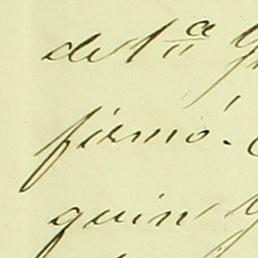 de 1ª
firmó.
quin